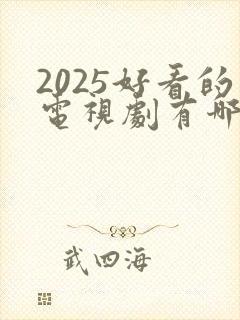 2025好看的
電視劇有哪
武四海